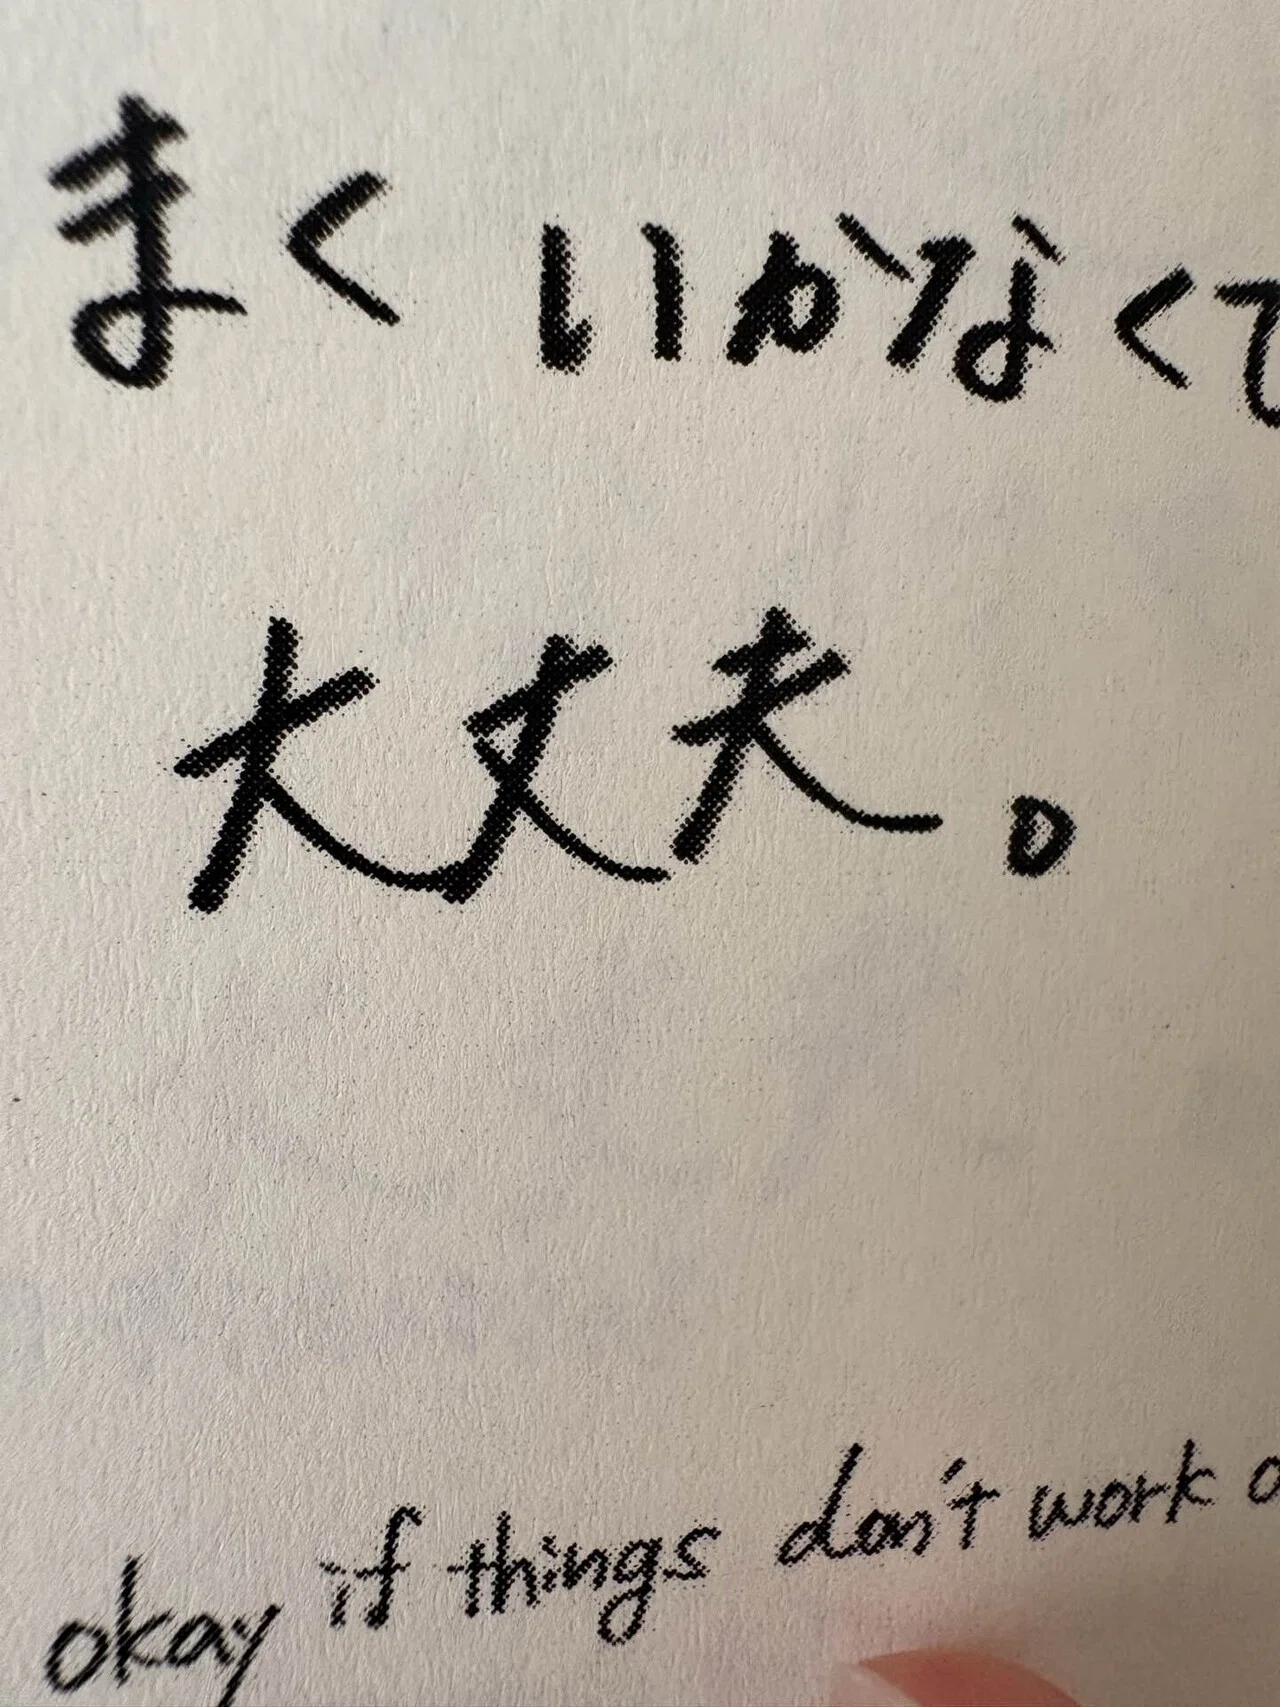 まくいかなくて
大丈夫。
okay if things don't work o